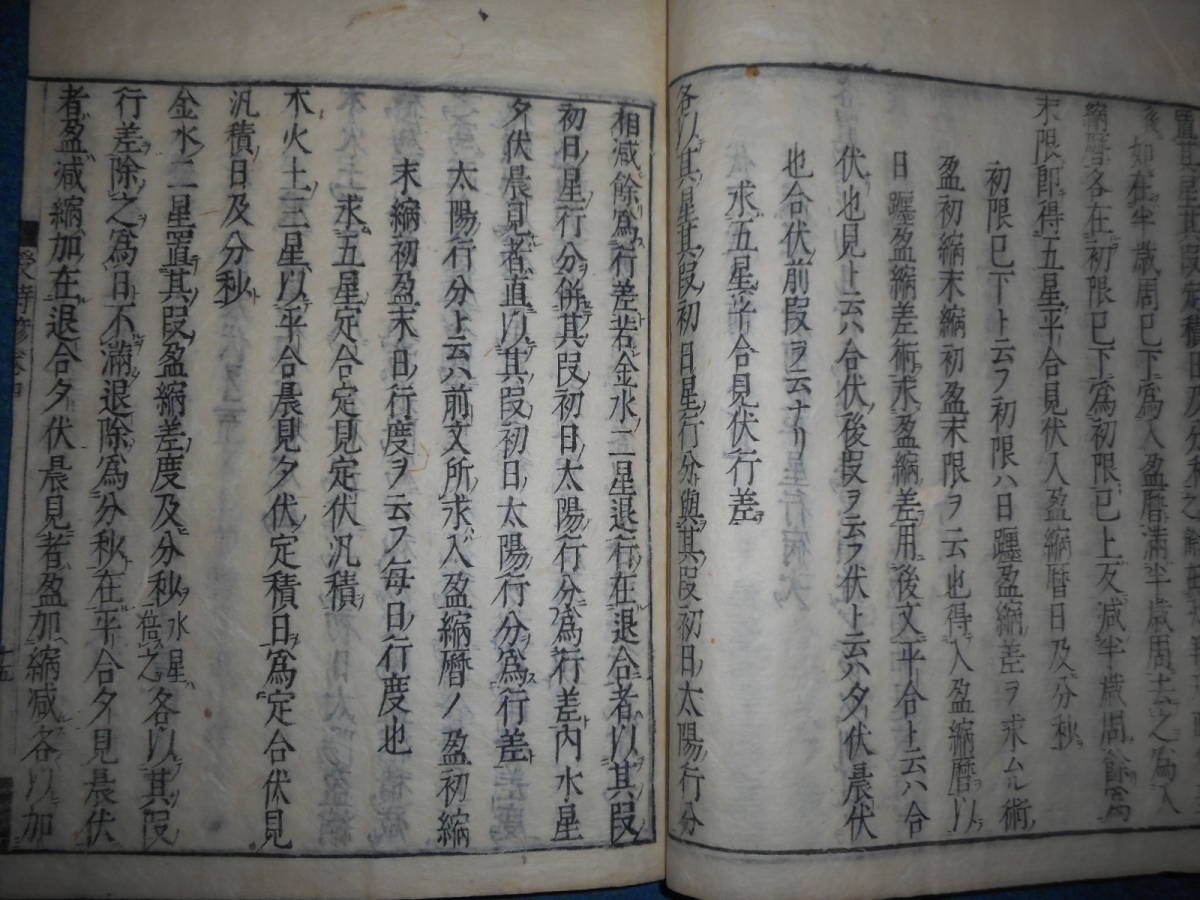 後如在半歳周已下為入盈曆滿半歳周去之為入
縮曆各在初限已下為初限已上反减半歳周餘為
末限即得五星平合見伏入盈縮曆日及分秒
初限已下ト云フ初限ハ日躔盈縮差ヲ求ムル術
盈初縮末縮初盈末限ヲ云也得入盈縮曆以
日躔盈縮差術求盈縮差用後文平合ト云ハ合
伏也見ト云ハ合伏後叚ヲ云フ伏ト云ハ夕伏晨伏
也合伏前叚ヲ云ナリ
求五星平合見伏行差
各以其星其叚初日星行分與其叚初日太陽行分
相减餘為行差若金水二星退行在退合者以其叚
初日星行分併其叚初日太陽行分為行差內水星
夕伏晨見者直以其叚初日太陽行分為行差
太陽行分ト云ハ前文所求入盈縮曆ノ盈初縮
末縮初盈末日行度ヲ云フ每日行度也
求五星定合定見定伏汎積
木火土三星以平合晨見夕伏定積日為定合伏見
汎積日及分秒
金水二星置其叚盈縮差度及分秒水星倍之各以其叚
行差除之為日不滿退除為分秒在平合夕見晨伏
者盈减縮加在退合夕伏晨見者盈加縮减各以加